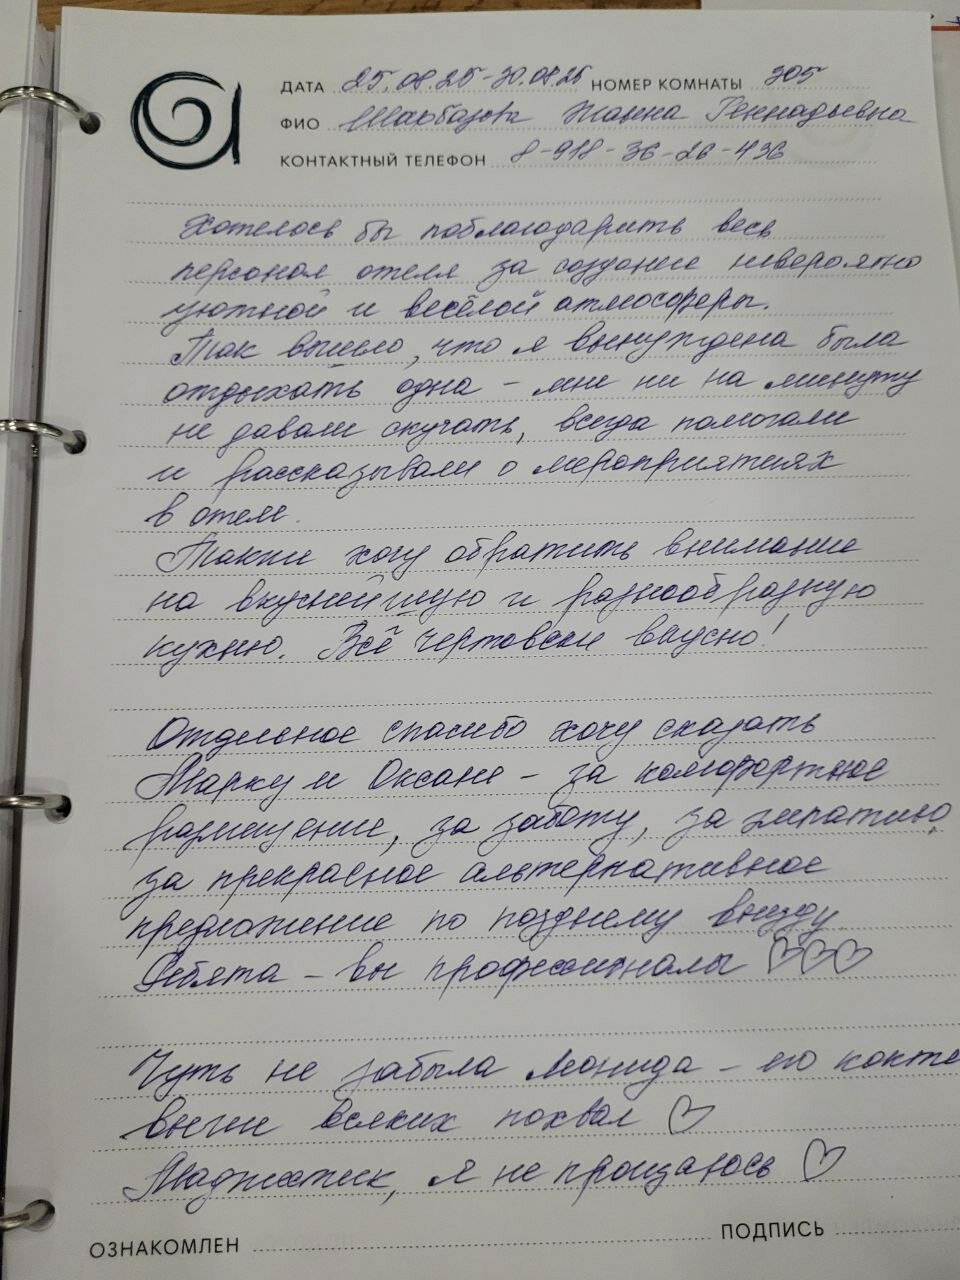 ДАТА 25.08.25-30.08.25 НОМЕР КОМНАТЫ 305
ФИО Жанна Геннадьевна
КОНТАКТНЫЙ ТЕЛЕФОН 8-918-36-26-436
Хотелось бы поблагодарить весь
персонал отеля за создание невероятно
уютной и весёлой атмосферы.
Так вышло, что я вынуждена была
отдыхать одна - мне ни на минуту
не давали скучать, всегда помогали
и рассказывали о мероприятиях
в отеле.
Также хочу обратить внимание
на вкуснейшую и разнообразную
кухню. Всё чертовски вкусно!
Отдельное спасибо хочу сказать
Марку и Оксане - за комфортное
размещение, за заботу, за эмпатию,
за прекрасное альтернативное
предложение по позднему выезду
Ребята - вы профессионалы ♡♡♡
Чуть не забыла Леонида - его кокте
выше всяких похвал ♡
Маджестик, я не прощаюсь ♡
ОЗНАКОМЛЕН ПОДПИСЬ